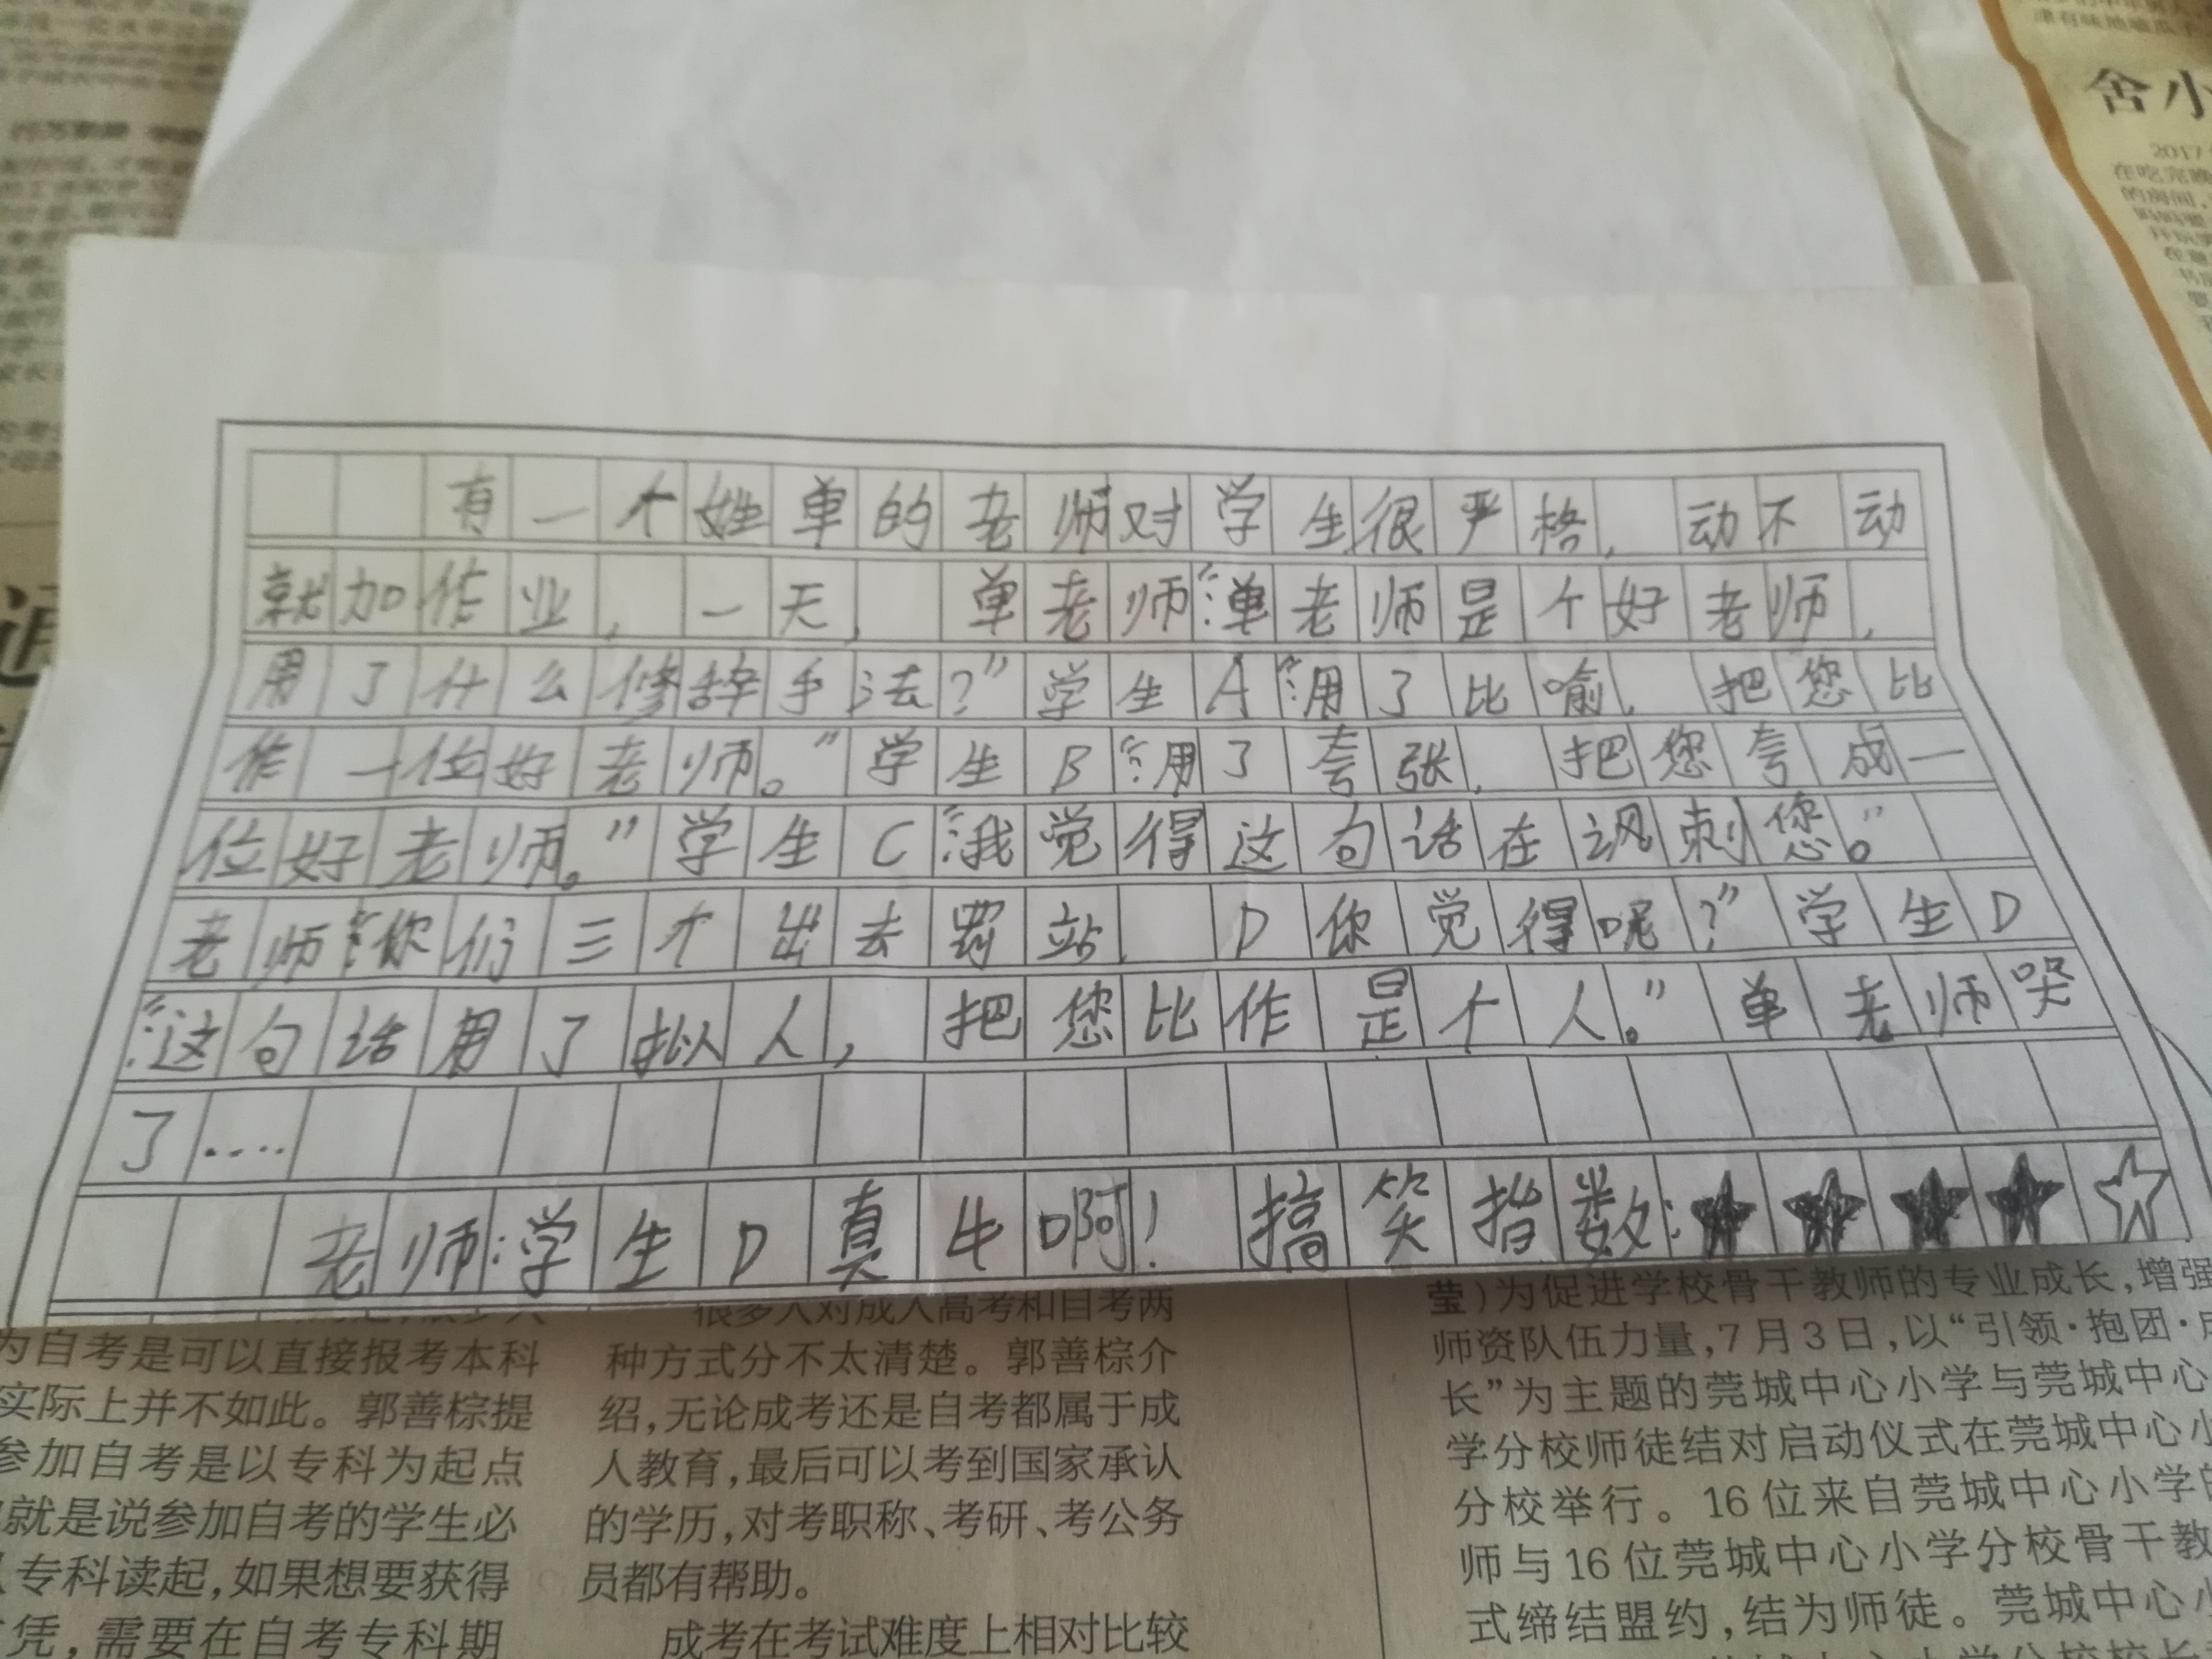 有一个姓单的老师对学生很严格，动不动
就加作业，一天，单老师：“单老师是个好老师，
用了什么修辞手法？”学生A：“用了比喻，把您比
作一位好老师。”学生B：“用了夸张，把您夸成一
位好老师。”学生C：“我觉得这句话在讽刺您。”
老师：“你们三个出去罚站，D你觉得呢？”学生D
：“这句话用了拟人，把您比作是个人。”单老师哭
了····
老师：学生D真牛啊！搞笑指数：★★★★☆
为自考是可以直接报考本科
实际上并不如此。郭善棕提
参加自考是以专科为起点
就是说参加自考的学生必
专科读起，如果想要获得
凭，需要在自考专科期
很多人对成人高考和自考两
种方式分不太清楚。郭善棕介
绍，无论成考还是自考都属于成
人教育，最后可以考到国家承认
的学历，对考职称、考研、考公务
员都有帮助。
成考在考试难度上相对比较
莹）为促进学校骨干教师的专业成长，增强
师资队伍力量，7月3日，以“引领·抱团·
长”为主题的莞城中心小学与莞城中心
学分校师徒结对启动仪式在莞城中心小
分校举行。16位来自莞城中心小学的
师与16位莞城中心小学分校骨干教
式缔结盟约，结为师徒。莞城中心小
舍小
2017